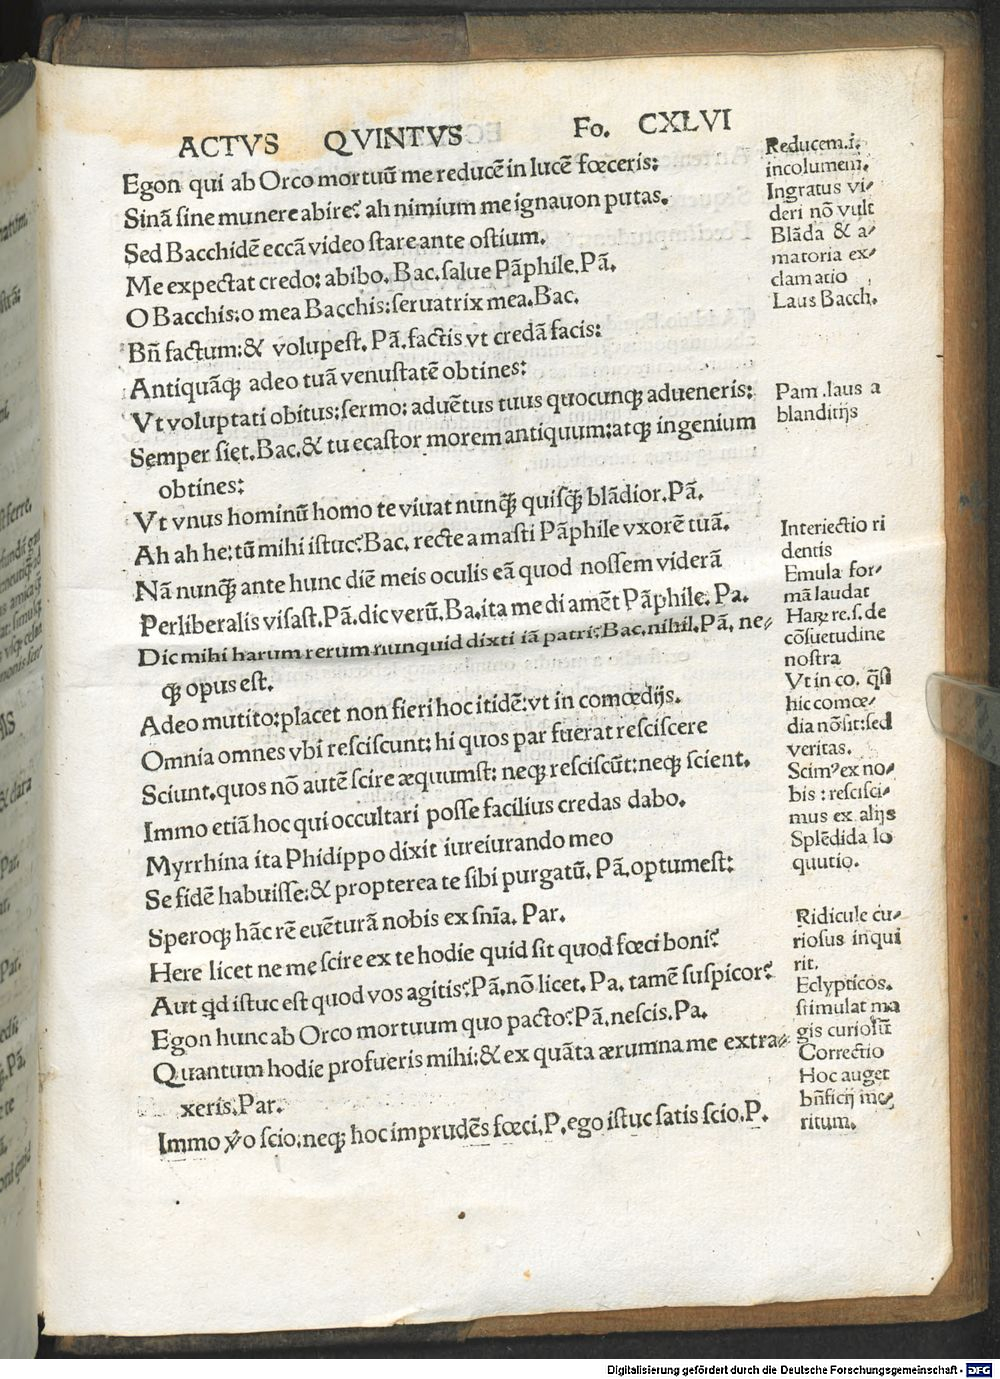 ACTVS QVINTVS Fo. CXLVI
Egon qui ab Orco mortuū me reducē in lucē fœceris:
Sinā sine munere abire? ah nimium me ignauon putas.
Sed Bacchidē eccā video stare ante ostium.
Me expectat credo: abibo. Bac. salue Pāphile. Pā.
O Bacchis: o mea Bacchis: seruatrix mea. Bac.
Bn̄ factum: & volupest. Pā. factis vt credā facis:
Antiquāq; adeo tuā venustatē obtines:
Vt voluptati obitus: sermo: aduētus tuus quocunq; adueneris:
Semper siet. Bac. & tu ecastor morem antiquum: atq; ingenium
obtines:
Vt vnus hominū homo te viuat nunq̄ quisq̄ blādior. Pā.
Ah ah he: tū mihi istuc? Bac. recte amasti Pāphile vxorē tuā.
Nā nunq̄ ante hunc diē meis oculis eā quod nossem viderā
Perliberalis visast. Pā. dic verū. Ba. ita me di amēt Pāphile. Pa.
Dic mihi harum rerum nunquid dixti iā patri? Bac. nihil. Pā. ne⸗
q; opus est.
Adeo mutito: placet non fieri hoc itidē: vt in comœdijs.
Omnia omnes vbi resciscunt: hi quos par fuerat resciscere
Sciunt. quos nō autē scire æquumst: neq; resciscūt: neq; scient.
Immo etiā hoc qui occultari posse facilius credas dabo.
Myrrhina ita Phidippo dixit iureiurando meo
Se fidē habuisse: & propterea te sibi purgatū. Pā. optumest:
Speroq; hāc rē euēturā nobis ex sn̄ia. Par.
Here licet ne me scire ex te hodie quid sit quod fœci boni?
Aut qd istuc est quod vos agitis? Pā. nō licet. Pa. tamē suspicor?
Egon hunc ab Orco mortuum quo pacto? Pā. nescis. Pa.
Quantum hodie profueris mihi: & ex quāta ærumna me extra⸗
xeris. Par.
Immo v̄o scio: neq; hoc imprudēs fœci. P. ego istuc satis scio. P.
Reducem .i.
incolumem.
Ingratus vi⸗
deri nō vult
Blāda & a⸗
matoria ex⸗
clamatio
Laus Bacch.
Pam. laus a
blanditijs
Interiectio ri
dentis
Emula for⸗
mā laudat
Haꝝ re. s. de
cōsuetudine
nostra
Vt in co. q̄si
hic comœ⸗
dia nō sit: sed
veritas.
Scimꝰ ex no⸗
bis: rescisci⸗
mus ex alijs
Splēdida lo
quutio.
Ridicule cu⸗
riosus inqui
rit.
Eclypticos.
stimulat ma
gis curiosū
Correctio
Hoc auget
bn̄ficij me⸗
ritum.
Digitalisierung gefördert durch die Deutsche Forschungsgemeinschaft - DFG